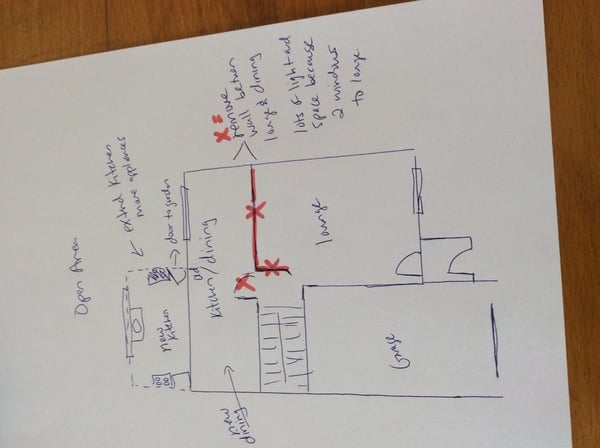 Open Area
← extend kitchen
more appliances
→ door to garden
new kitchen
old
kitchen/dining
new
dining
X =
remove
wall between
lounge & dining
lots of light and
space because
2 windows
to lounge
lounge
Garage